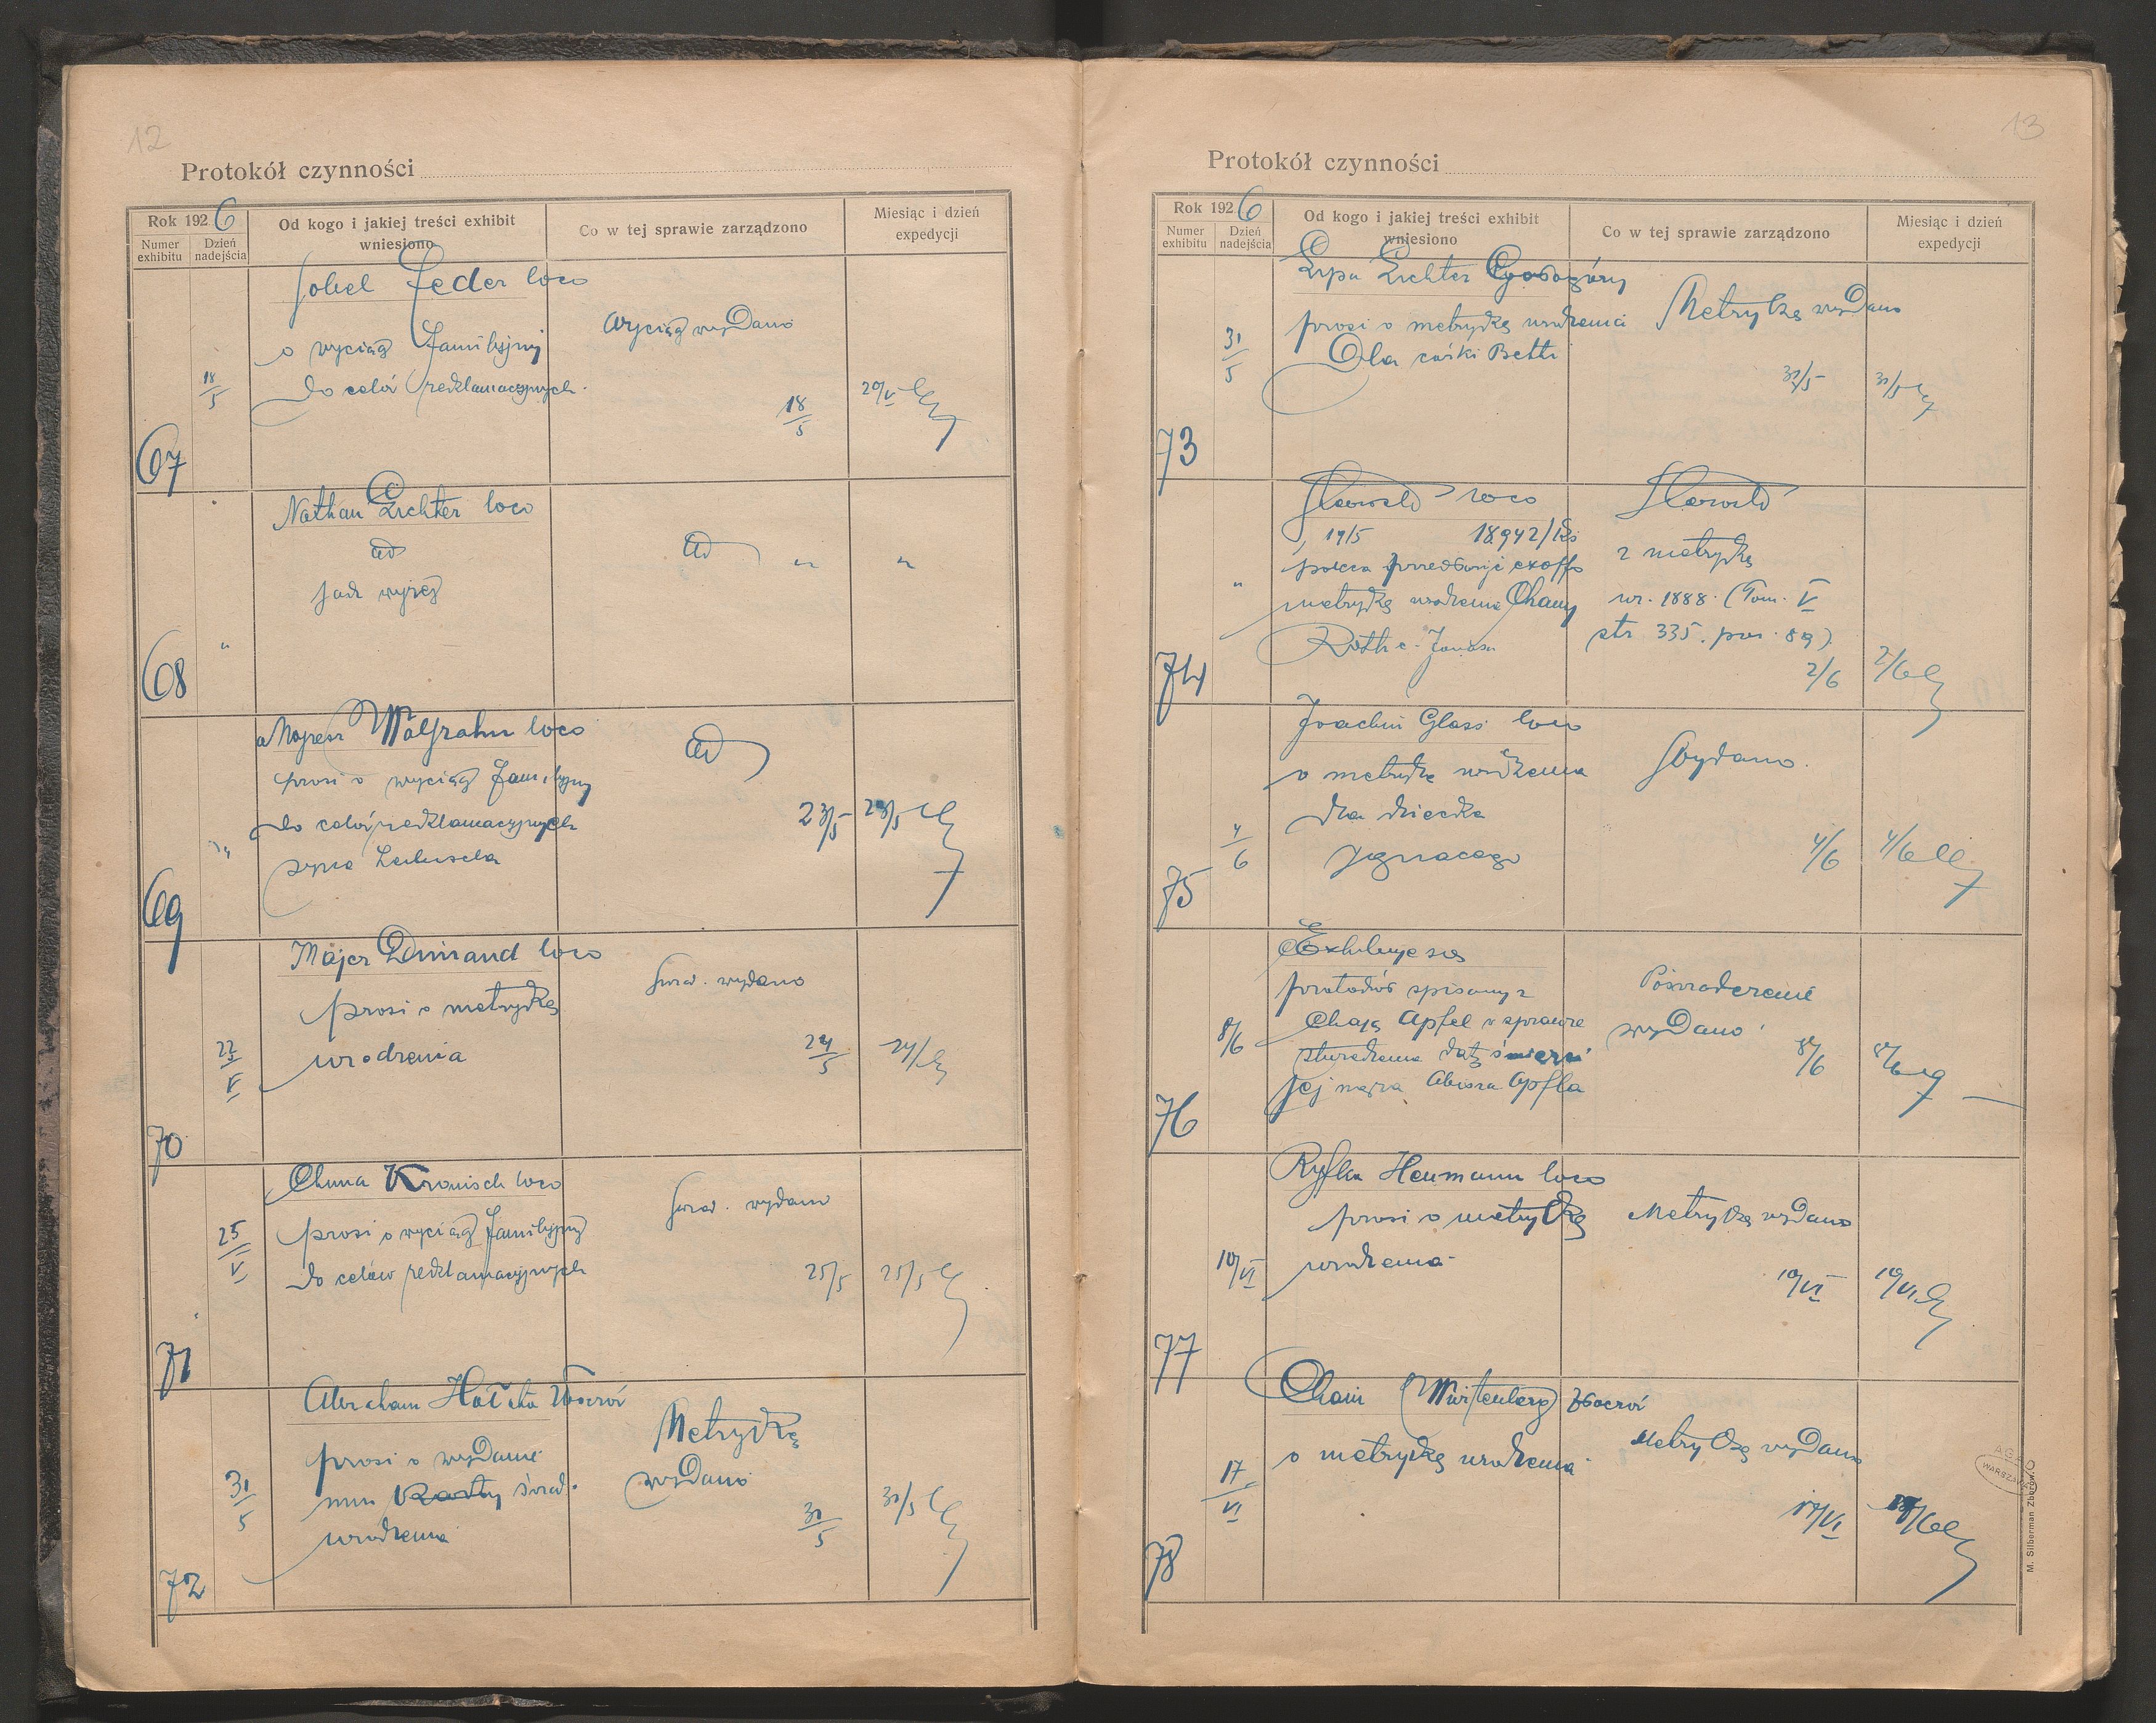 12
Protokół czynności
Rok 1926
Numer exhibitu
Dzień nadejścia
Od kogo i jakiej treści exhibit wniesiono
Co w tej sprawie zarządzono
Miesiąc i dzień expedycji
67
18/5
Sobel Feder loco
o wyciąg familijny
do celów reklamacyjnych
Wyciąg wydano
18/5
20/V
68
"
Nathan Lichter loco
"
"
69
"
Mojżesz loco
prosi o wyciąg familijny
do celów reklamacyjnych
syna
23/5
23/5
70
22/V
Majer Dimand loco
prosi o metrykę
urodzenia
świad. wydano
24/5
24/
71
25/V
Chuna Kronisch loco
prosi o wyciąg familijny
do celów reklamacyjnych
świad. wydano
25/5
25/5
72
31/5
Abraham
prosi o wydanie
mu Karty świad.
urodzenia
Metrykę
wydano
31/5
31/5
13
Protokół czynności
Rok 1926
Numer exhibitu
Dzień nadejścia
Od kogo i jakiej treści exhibit wniesiono
Co w tej sprawie zarządzono
Miesiąc i dzień expedycji
73
31/5
Lipa Lichter Gołogóry
prosi o metrykę urodzenia
Dla córki Betti
Metrykę wydano
31/5
31/5
74
"
loco
19/5 18942/
poleca exoffo
metrykę urodzenia Chany
Roth c. Jonasa
z metryką
nr. 1888. (Tom. V
str 335. poz. 89)
2/6
2/6
75
4/6
Joachim Glass loco
o metrykę urodzenia
dla dziecka
Ignacego
Wydano.
4/6
4/6
76
8/6
Exhibuje się
protokół spisany z
Chają Apfel w sprawie
stwierdzenia daty śmierci
jej męża Apfla
Poświadczenie
wydano
8/6
8/6
77
10/VI
Ryfka Heumann loco
prosi o metrykę
urodzenia
Metrykę wydano
10/VI
10/VI
78
17/VI
Chaim
o metrykę urodzenia
Metrykę wydano
17/VI
AGAD
WARSZAWA
M. Silberman Zborów.